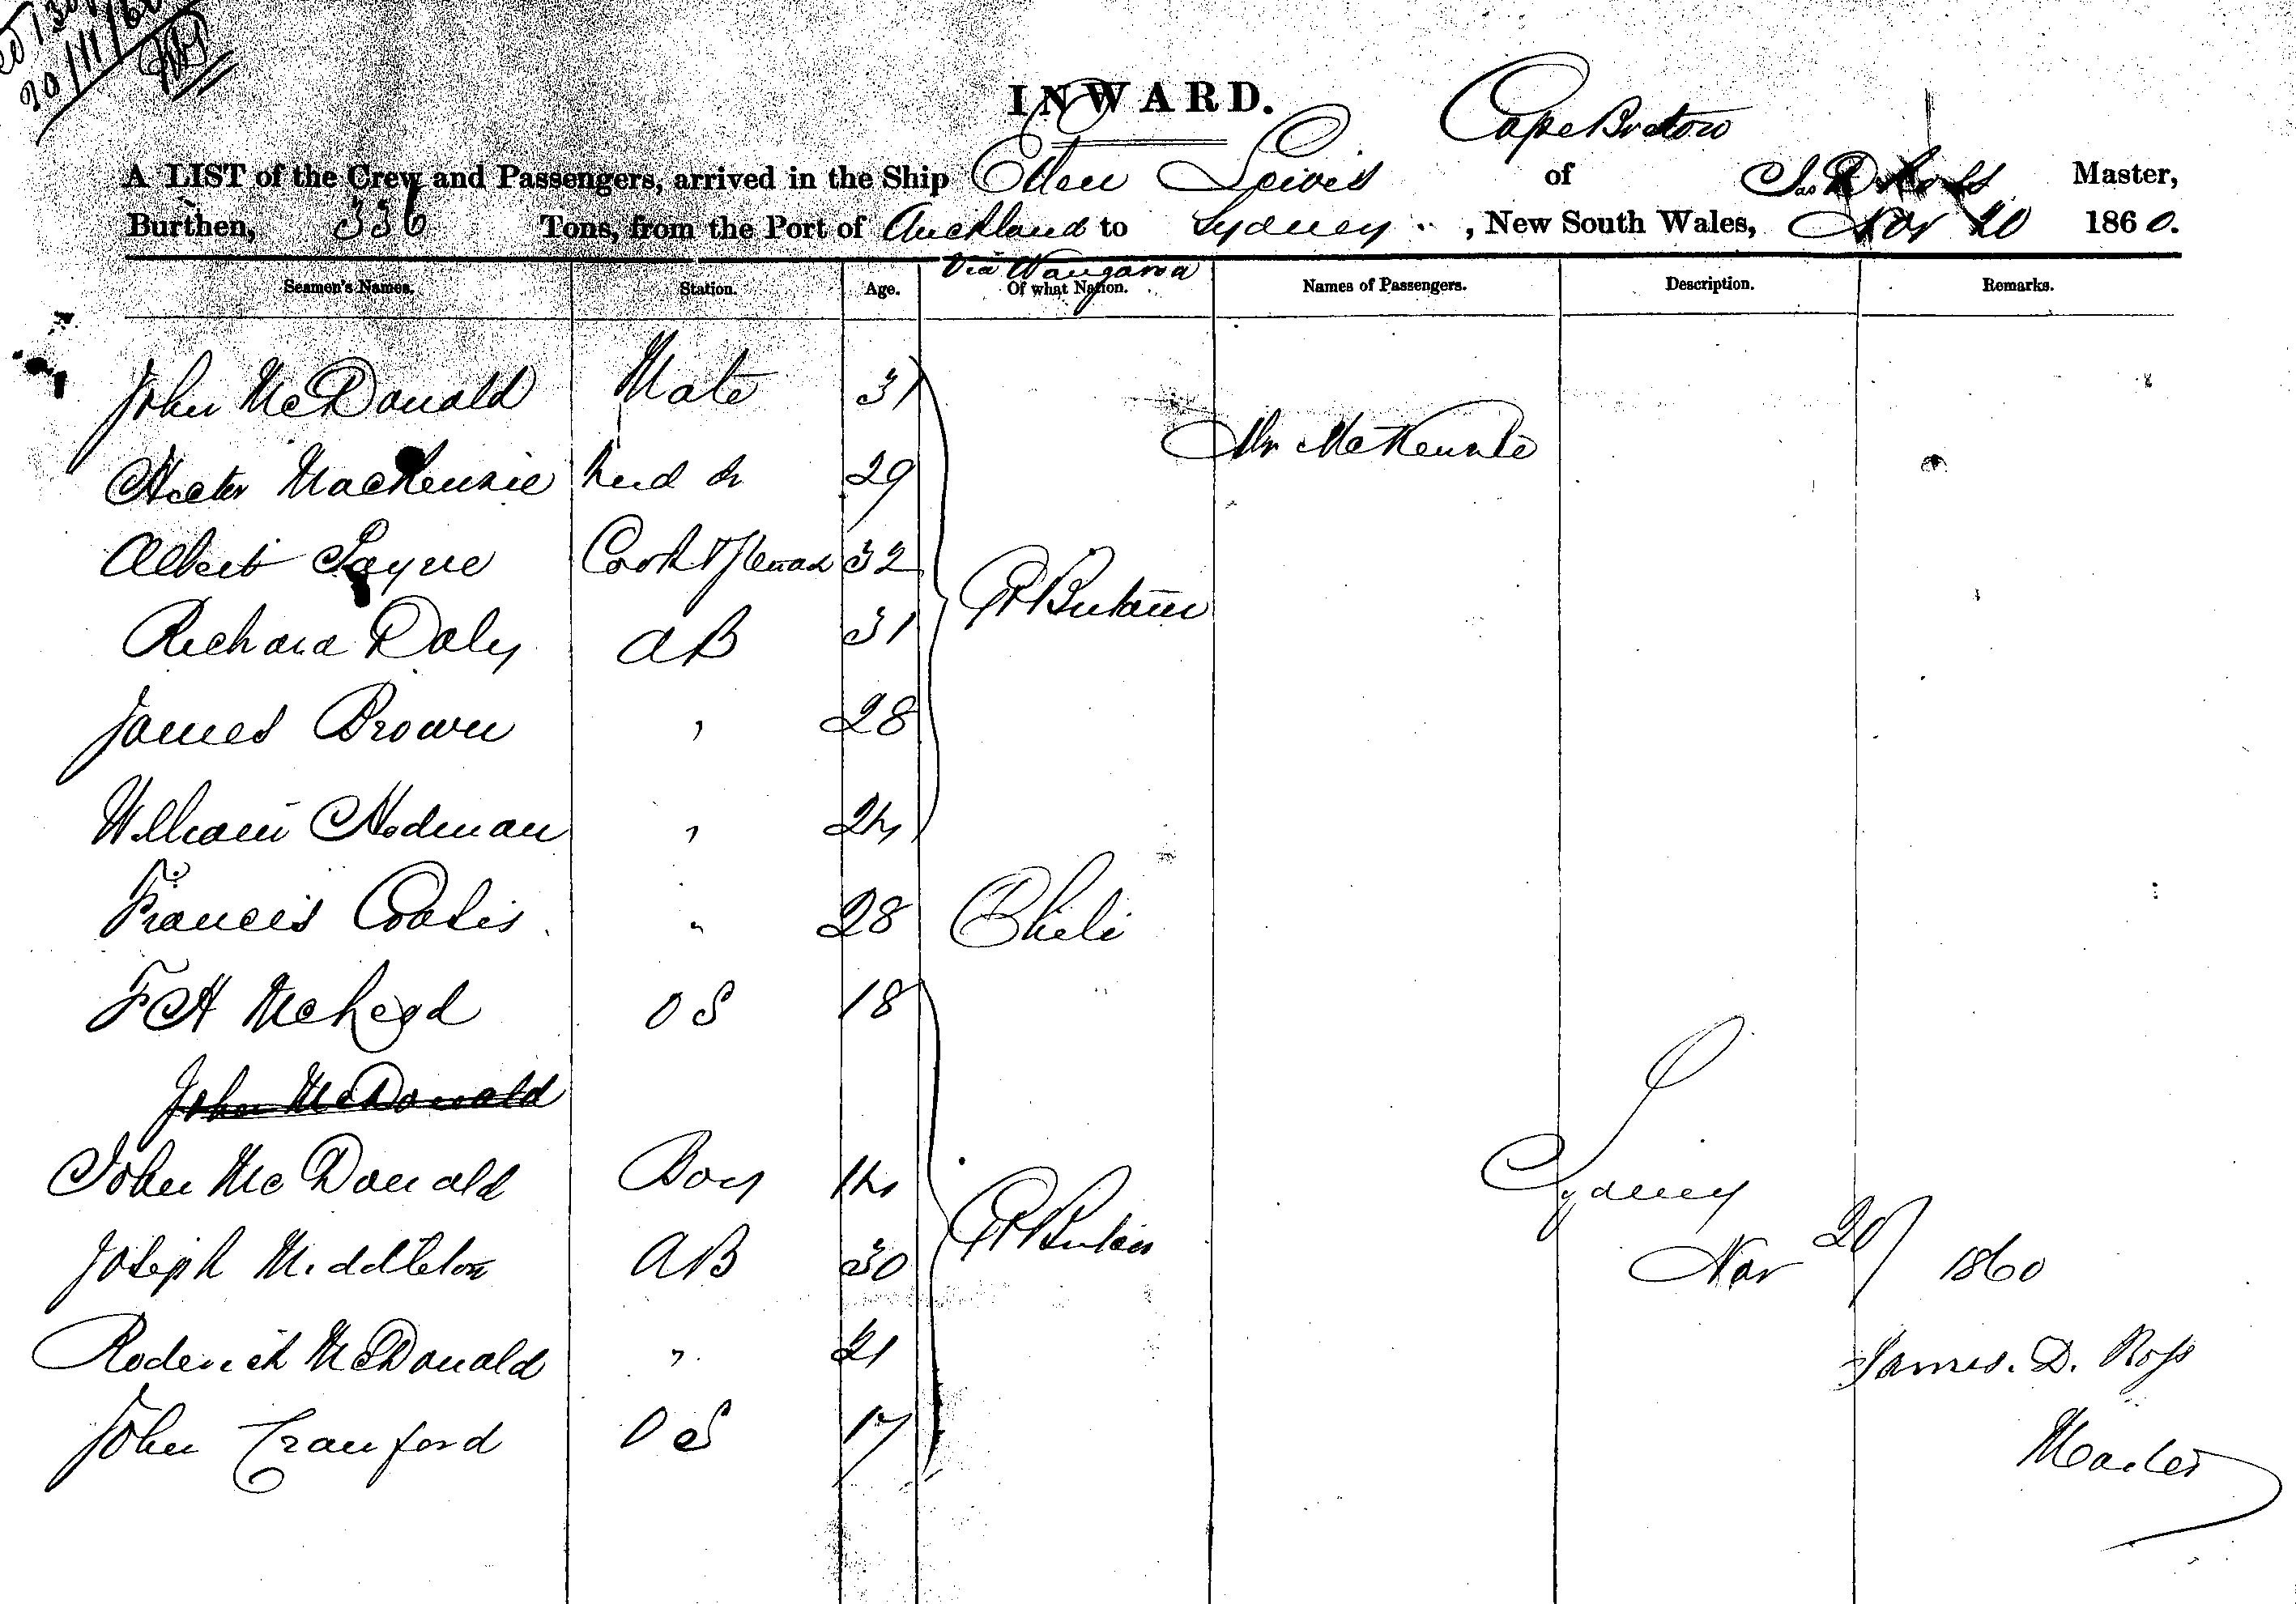 20/11/60
INWARD.
Cape Breton
A LIST of the Crew and Passengers, arrived in the Ship Ellen Lewis of Jas D Ross Master,
Burthen, 336 Tons, from the Port of Auckland to Sydney, New South Wales, Nov 20 1860.
Via Wangaroa
Seamen's Names. Station. Age. Of what Nation. Names of Passengers. Description. Remarks.
John McDonald Mate 31
Mr McKenzie
Hector MacKenzie 29
Albert Payne Cook & Steward 32
Gt Britain
Richard Daly AB 31
James Brown " 28
William Hodman " 24
Francis " 28 Chili
F H McLeod OS 18
John McDonald
John McDonald Boy 14
Sydney
Gt Britain
Joseph Middleton AB 30
Nov 20/ 1860
Roderick McDonald " 21
James. D. Ross
John Cranford OS 17
Master